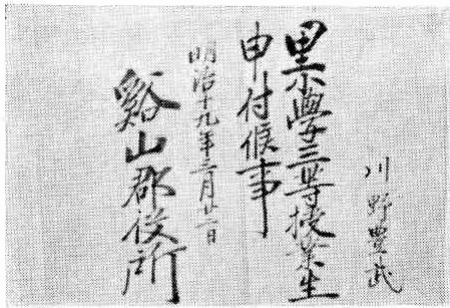 川野豊武
小學三等授業生
申付候事
明治十九年三月廿二日
谿山郡役所